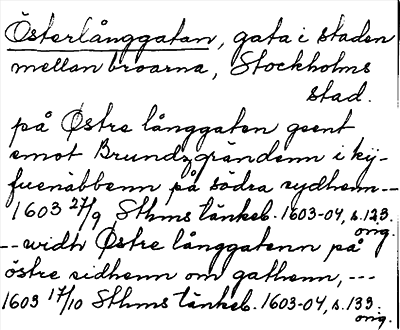 Österlånggatan, gata i staden
mellan broarna, Stockholms
stad.
på Østre långgaten geent
emot Brundzgrändenn i ky-
fuenäbbenn på södra sydhenn--
1603 27/9 Sthms tänkeb. 1603-04, s. 123.
orig.
--widh Østre långgatenn på
östre sidhenn om gathenn, ---
1603 17/10 Sthms tänkeb. 1603-04, s. 133.
orig.